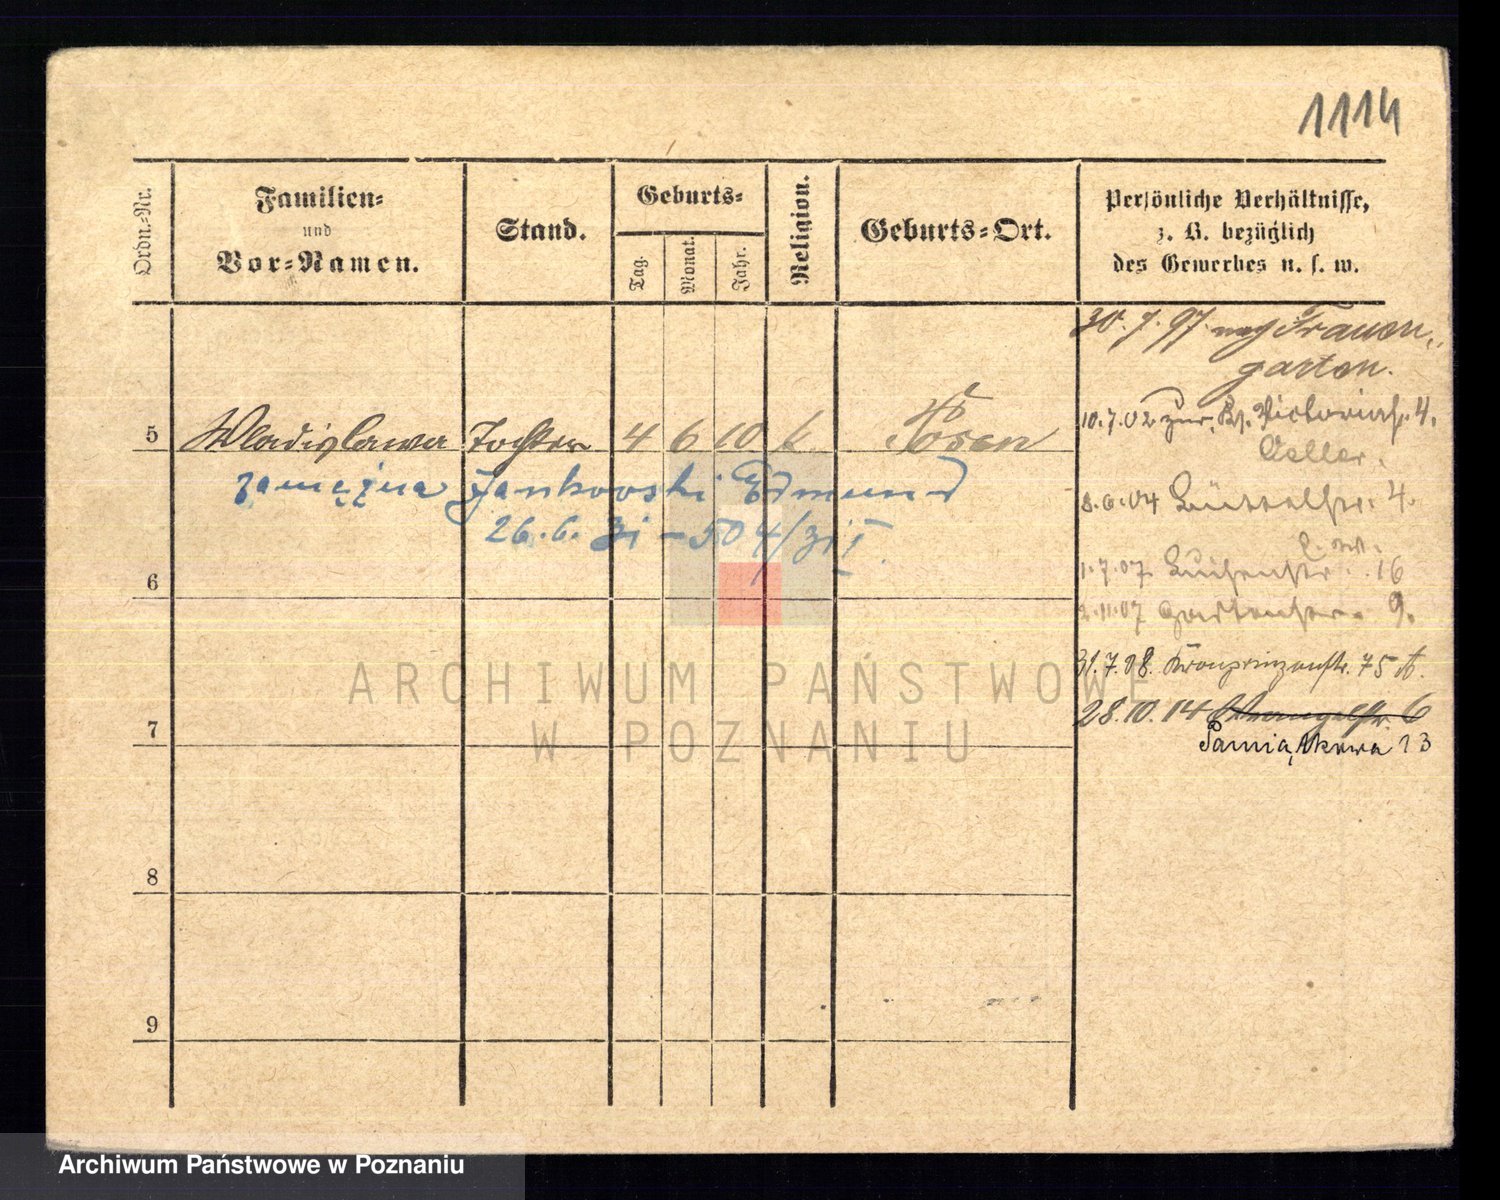 1114
Ordn.-Nr.
Familien-
und
Vor-Namen.
Stand.
Geburts-
Tag.
Monat.
Jahr.
Religion.
Geburts-Ort.
Persönliche Verhältnisse,
z. B. bezüglich
des Gewerbes u. s. w.
30.7.97 nach Frauen-
garten.
5 Wladislawa Tochter 4 6 10 k. Posen
10.7.02 zur. Victoriastr. 4.
Keller.
zamężna Jankowski Edmund
8.6.04 4.
26.6.31 – 504/31 I
6
1.7.07. Luisenstr. 16
2.11.07 Gartenstr. 9.
31.7.08. Kronprinzenstr. 75
28.10.14 Wrangelstr 6
7
Pamiątkowa 13
8
9
ARCHIWUM PAŃSTWOWE
W POZNANIU
Archiwum Państwowe w Poznaniu